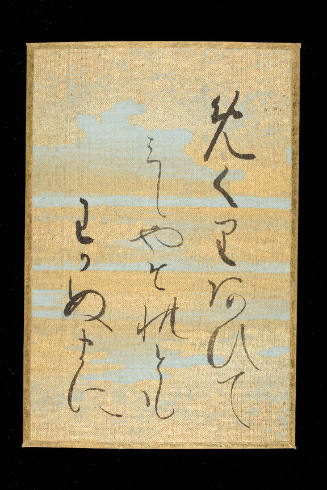 めくりあひて
みしやそれとも
わかぬまに